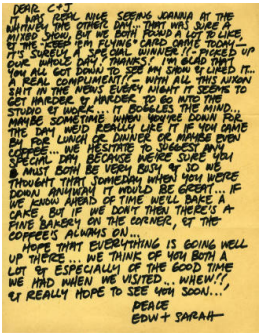 DEAR C+J
IT WAS REAL NICE SEEING JOANNA AT THE
WHITNEY THE OTHER DAY.. THAT WAS SURE A
MIXED SHOW, BUT WE BOTH FOUND A LOT TO LIKE.
& THE "KEEP 'EM FLYING" CARD CAME TODAY.
IT'S SURELY A SPECIAL WINNER & PICKED UP
OUR WHOLE DAY! THANKS. I'M GLAD THAT
YOU ALL GOT DOWN TO SEE MY SHOW & LIKED IT...
A REAL COMPLIMENT! - WITH ALL THIS WAR
SHIT IN THE NEWS EVERY NIGHT IT SEEMS TO
GET HARDER & HARDER TO GO INTO THE
STUDIO & WORK... IT BOGGLES THE MIND...
MAYBE SOMETIME WHEN YOU'RE DOWN FOR
THE DAY, WE'D REALLY LIKE IT IF YOU CAME
BY FOR LUNCH OR DINNER OR MAYBE EVEN
COFFEE... WE HESITATE TO SUGGEST ANY
SPECIAL DAY, BECAUSE WE'RE SURE YOU
MUST BOTH BE VERY BUSY, & SO WE
THOUGHT THAT SOMEDAY WHEN YOU WERE
DOWN ANYWAY IT WOULD BE GREAT... IF
WE KNOW AHEAD OF TIME WE'LL BAKE A
CAKE, BUT IF WE DON'T THEN THERE'S A
FINE BAKERY ON THE CORNER, & THE
COFFEE'S ALWAYS ON...
HOPE THAT EVERYTHING IS GOING WELL
UP THERE... WE THINK OF YOU BOTH A
LOT & ESPECIALLY OF THE GOOD TIME
WE HAD WHEN WE VISITED... WHEW!!
& REALLY HOPE TO SEE YOU SOON...!
PEACE
EDW + SARAH